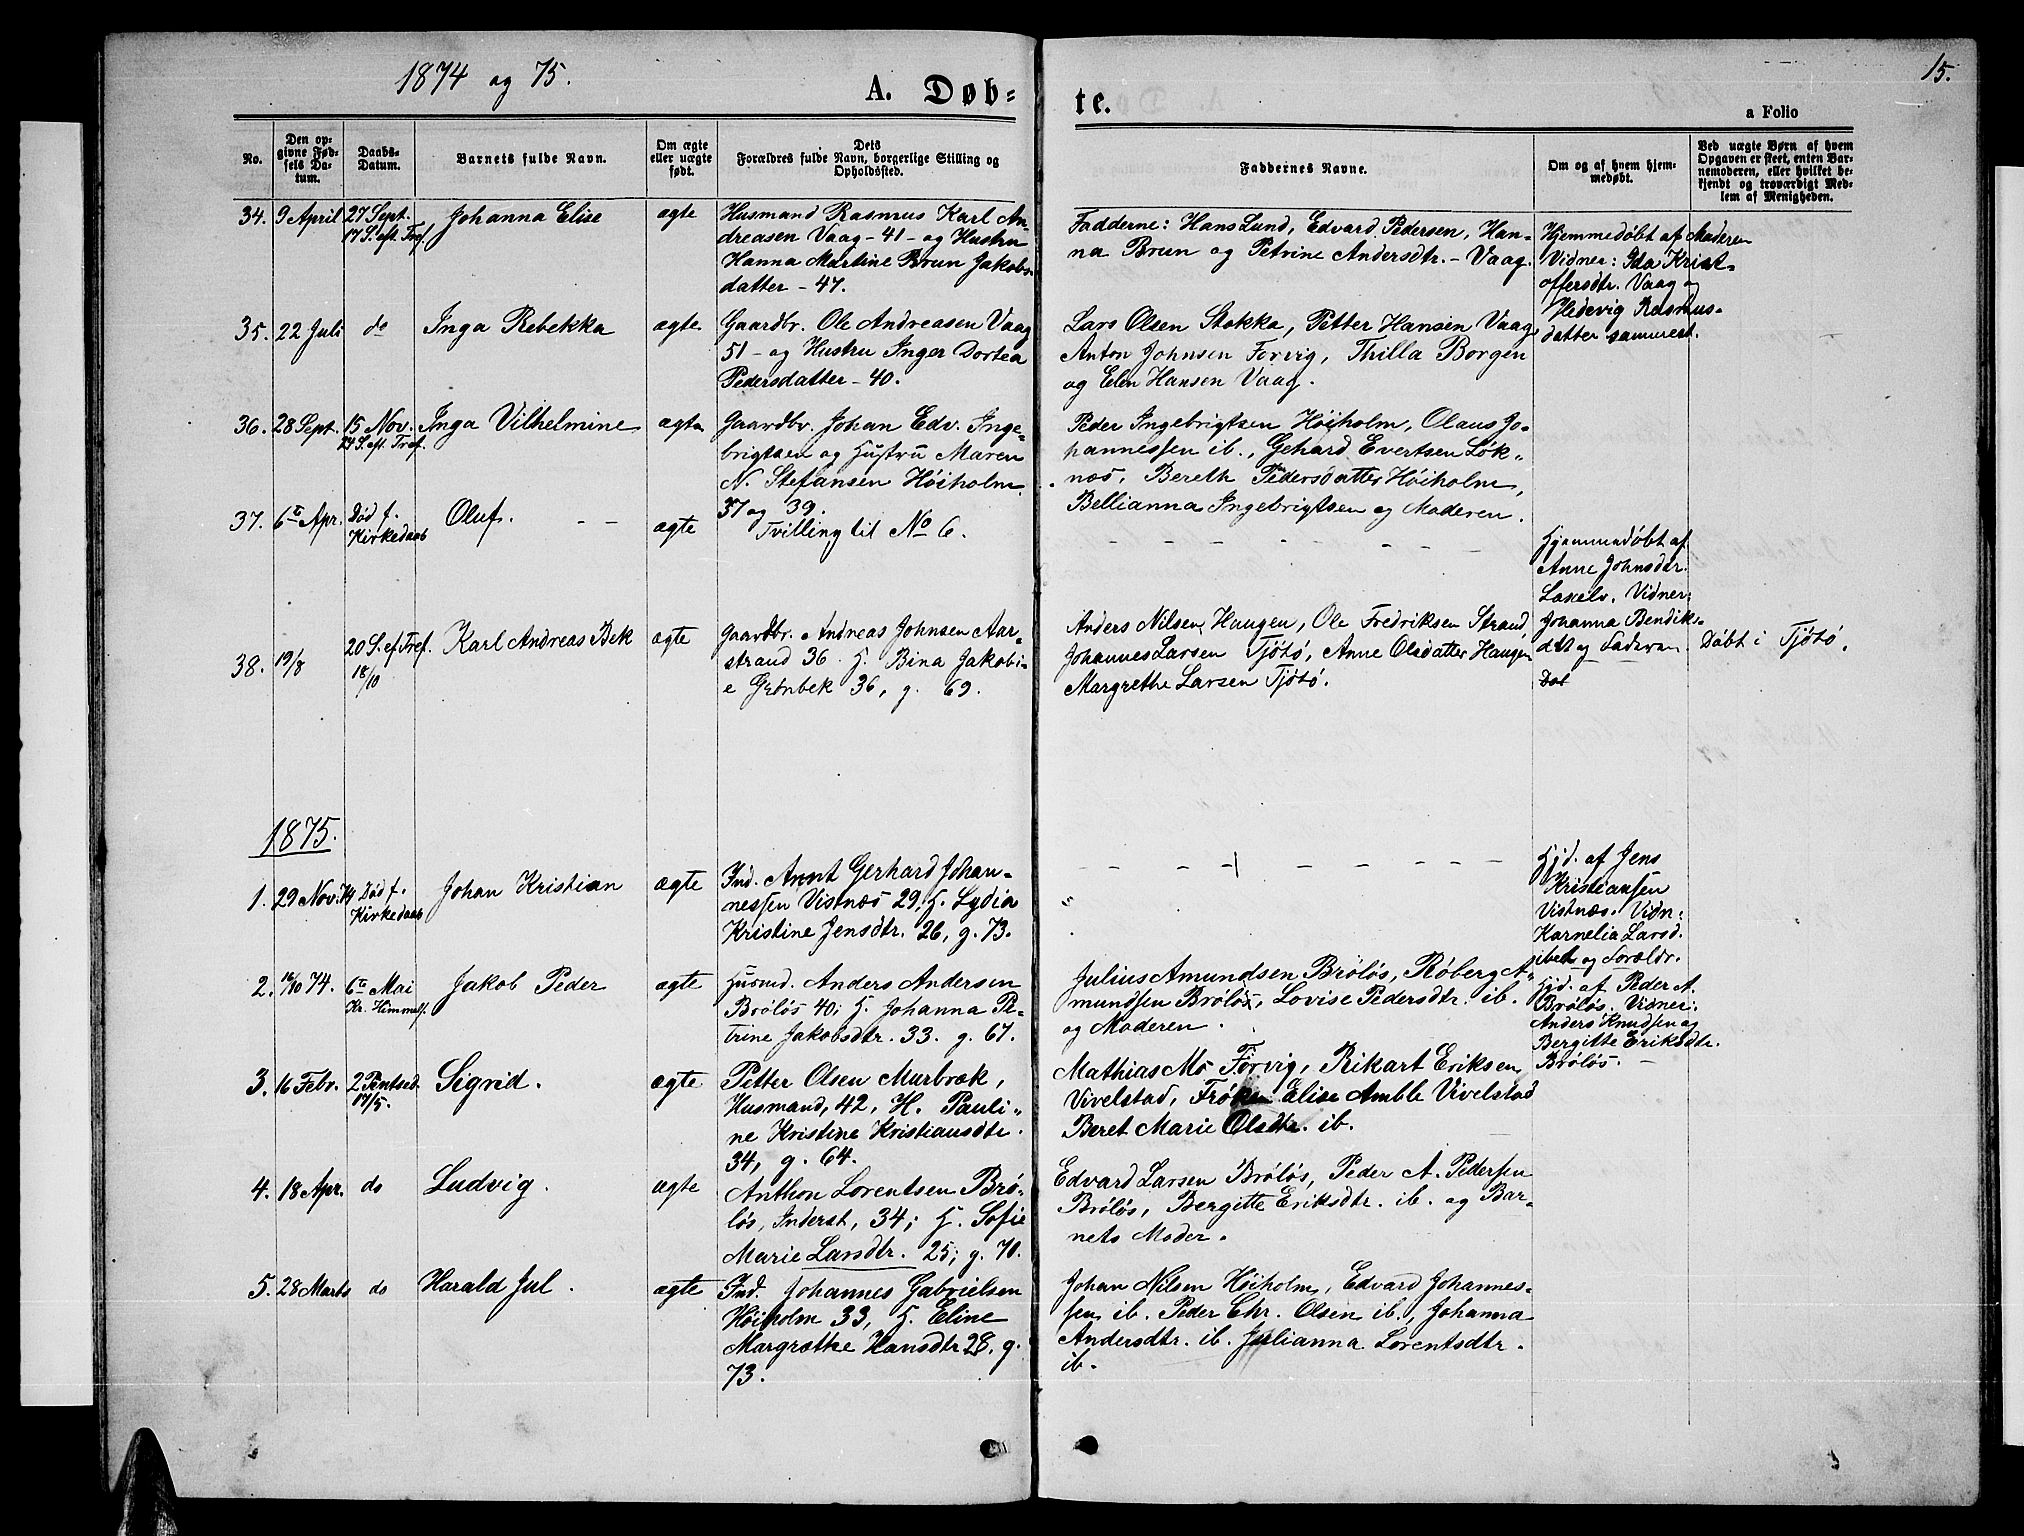 1874 og 75.
15.
A. Døb-
te.
a Folio
No.
Den op-
givne Fød-
sels Da-
tum.
Daabs-
Datum.
Barnets fulde Navn.
Om ægte
eller uægte
født.
Dets
Forældres fulde Navn, borgerlige Stilling og
Opholdssted.
Faddernes Navne.
Om og af hvem hjem-
medøbt.
Ved uægte Børn af hvem
Opgaven er skeet, enten Bar-
nemoderen, eller hvilket be-
kjendt og troværdigt Med-
lem af Menigheden.
34. 9 April 27 Sept.
17 S. eft. Tref.
Johanna Elise
ægte
Husmand Rasmus Karl An-
dreasen Vaag - 41 - og Hustru
Hanna Martine Brun Jakobs-
datter - 47.
Fadderne: Hans Lund, Edvard Pedersen, Han-
na Brun og Petrine Andersdtr. - Vaag.
Hjemmedøbt af Moderen
Vidner: Ida Krist-
offersdtr. Vaag og
Hedevig Rasmus-
datter sammest.
35. 22 Juli do
Inga Rebekka
ægte
Gaardbr. Ole Andreasen Vaag
51 - og Hustru Inger Dortea
Pedersdatter - 40.
Lars Olsen Stokka, Petter Hansen Vaag
Anton Johnsen Forvig, Thilla Borgen
og Elen Hansen Vaag.
36. 28 Sept. 15 Nov.
24 S. eft. Tref.
Inga Vilhelmine
ægte
Gaardbr. Johan Edv. Inge-
brigtsen og Hustru Maren
N. Stefansen Höiholm
37 og 39.
Peder Ingebrigtsen Höiholm, Olaus Jo-
hannessen ib., Gehard Evertsen Løk-
næs, Bereth Pedersdatter Höiholm,
Bellianna Ingebrigtsen og Moderen.
37. 6te Apr. Død f.
Kirkedaab
Oluf. - -
ægte
Tvilling til No 6.
Hjemmedöbt af
Anne Johnsdtr.
Laxelv. Vidner:
Johanna Bendik-
dtr og Faderen
38. 19/8
20 S. ef Tref.
18/10
Karl Andreas Bek
ægte
Gaardbr. Andreas Johnsen Aar-
strand 36 H. Bina Jakobi-
e Grönbek 36, g. 69.
Anders Nilsen Haugen, Ole Fredriksen Strand,
Johannes Larsen Tjötö, Anne Olsdatter Haugen
Margrethe Larsen Tjötö.
Döbt i Tjötö.
1875.
1. 29 Nov. 74 Död f.
Kirkedaab
Johan Kristian
ægte
Ind. Arnt Gerhard Johan-
nessen Vistnæs 29, H. Lydia
Kristine Jensdtr. 26, g. 73.
Hjd. af Jens
Kristiansen
Vistnæs. Vidn:
Kornelia Larsd.
ibet og Forældr.
2. 16/10 74. 6te Mai
Kr. Himmelf.
Jakob Peder
ægte
Husmd. Anders Andersen
Brölös 40; H. Johanna Pe-
trine Jakobsdtr. 33. g. 67.
Julius Amundsen Brölös, Röberg A-
mundsen Brölös, Lovise Pedersdtr. ib.
og Moderen.
Hjd. af Peder A.
Brölös. Vidner:
Anders Knudsen og
Bergitte Eriksdtr.
Brölös.
3. 16 Febr. 2 Pintsed.
17/5.
Sigrid.
ægte
Petter Olsen Murbræk,
Husmand, 42, H. Pauli-
ne Kristine Kristiansdtr.
34, g. 64.
Mathias Mo Forvig, Rikart Eriksen
Vivelstad, Frøken Elise Amble Vivelstad
Beret Marie Olsdtr. ib.
4. 18 Apr. do
Ludvig.
ægte
Anthon Lorentsen Brö-
lös, Inderst, 34; H. Sofie
Marie Larsdtr. 25; g. 70.
Edvard Larsen Brölös, Peder A. Pedersen
Brölös, Bergitte Eriksdtr. ib. og Bar-
nets Moder.
5. 28 Marts do
Harald Jul.
ægte
Ind. Johannes Gabrielsen
Höiholm 33, H. Eline
Margrethe Hansdtr 28, g.
73.
Johan Nilsen Höiholm, Edvard Johannes-
sen ib. Peder Chr. Olsen ib., Johanna
Andersdtr. ib. Julianna Lorentsdtr.
ib.